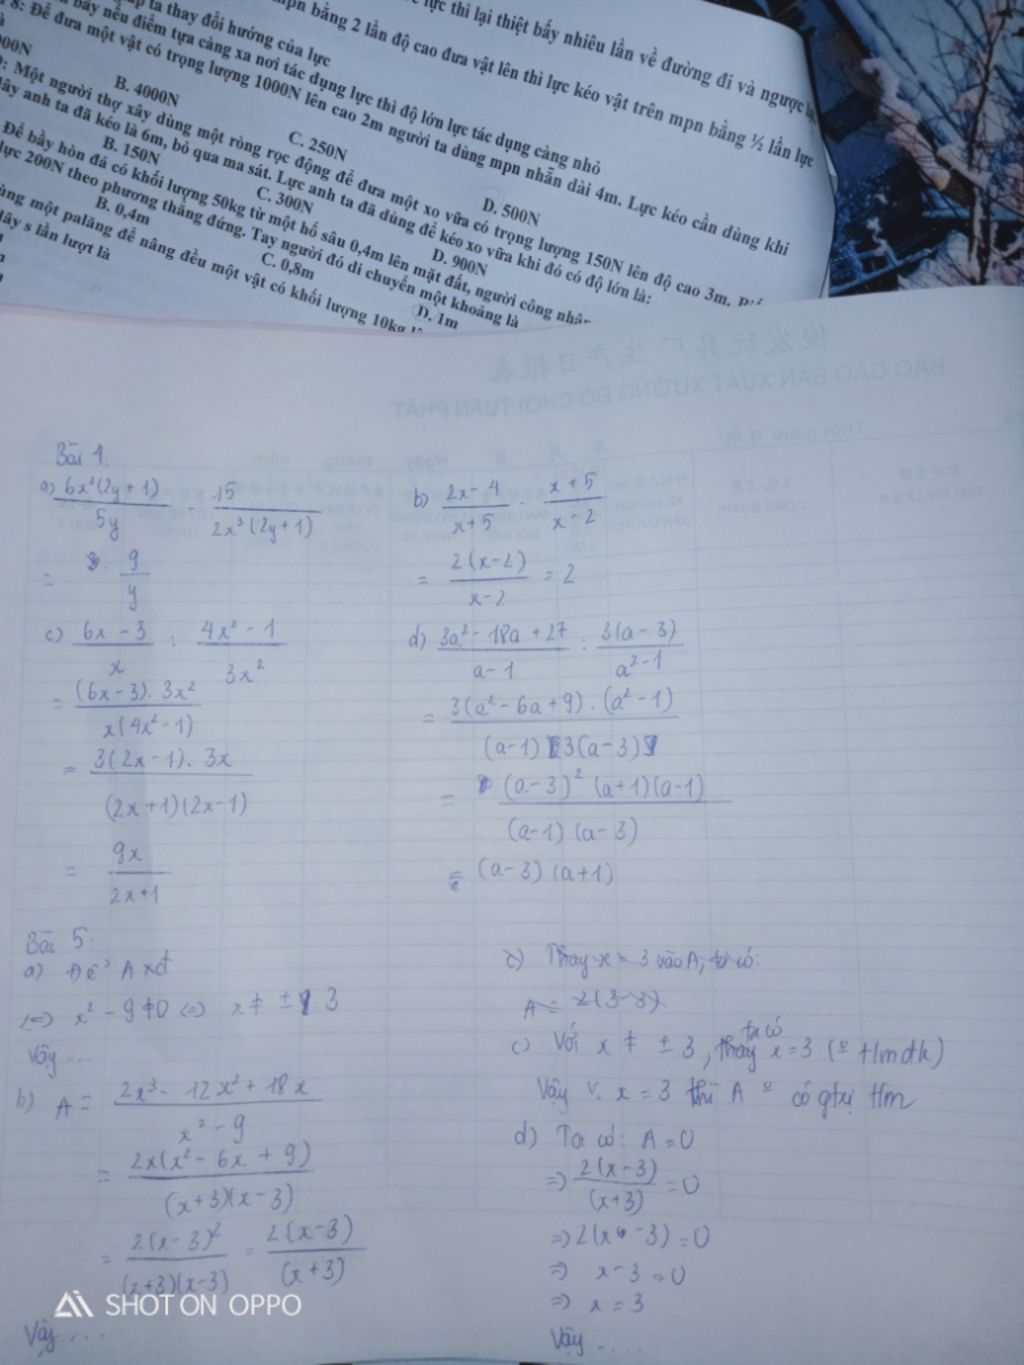 lực thì lại thiệt bấy nhiêu lần về đường đi và ngược lại
mpn bằng 2 lần độ cao đưa vật lên thì lực kéo vật trên mpn bằng ½ lần lực
ta thay đổi hướng của lực
bẩy nếu điểm tựa càng xa nơi tác dụng lực thì độ lớn lực tác dụng càng nhỏ
8: Để đưa một vật có trọng lượng 1000N lên cao 2m người ta dùng mpn nhẵn dài 4m. Lực kéo cần dùng khi
B. 4000N
C. 250N
D. 500N
: Một người thợ xây dùng một ròng rọc động để đưa một xo vữa có trọng lượng 150N lên độ cao 3m.
dây anh ta đã kéo là 6m, bỏ qua ma sát. Lực anh ta đã dùng để kéo xo vữa khi đó có độ lớn là:
B. 150N
C. 300N
D. 900N
Để bẩy hòn đá có khối lượng 50kg từ một hố sâu 0,4m lên mặt đất, người công nhân
lực 200N theo phương thẳng đứng. Tay người đó di chuyển một khoảng là
B. 0,4m
C. 0,8m
D. 1m
một palăng để nâng đều một vật có khối lượng 10kg
dây s lần lượt là
BÁO CÁO SẢN XUẤT XƯỞNG ĐỒ CHƠI TUẤN PHÁT
Bài 4:
a) 6x²(2y+1) / 5y · 15 / 2x³(2y+1)
= 9 / y
b) 2x-4 / x+5 · x+5 / x-2
= 2(x-2) / x-2 = 2
c) 6x-3 / x : 4x²-1 / 3x²
= (6x-3). 3x² / x(4x²-1)
= 3(2x-1). 3x / (2x+1)(2x-1)
= 9x / 2x+1
d) 3a²-18a+27 / a-1 : 3(a-3) / a²-1
= 3(a²-6a+9).(a²-1) / (a-1)3(a-3)
= (a-3)²(a+1)(a-1) / (a-1)(a-3)
= (a-3)(a+1)
Bài 5:
a) Để A xđ
<=> x²-9≠0 <=> x≠ ± 3
Vậy ...
b) A = 2x³-12x²+18x / x²-9
= 2x(x²-6x+9) / (x+3)(x-3)
= 2(x-3)² / (x+3)(x-3) = 2(x-3) / (x+3)
Vậy ....
c) Thay x = 3 vào A, ta có:
A = 2(3-3)
c) Với x ≠ ± 3, ta có x=3 (º t/m đk)
Vậy v. x = 3 thì A º có gtrị t/m
d) Ta có: A=0
=> 2(x-3) / (x+3) = 0
=> 2(x-3)=0
=> x-3=0
=> x=3
Vậy ....
SHOT ON OPPO